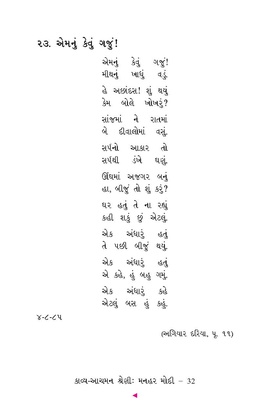 ૨૩. એમનું કેવું ગજું!
એમનું કેવું ગજું!
મીણનું ખાધું વડું.
હે અછાંદસ! શું થયું
કેમ બોલે ખોખરું?
સાંજમાં ને રાતમાં
બે દીવાલોમાં વસું.
સર્પનો આકાર તો
સર્પથી ડંખે ઘણું.
ઊંઘમાં અજગર બનું
હા, બીજું તો શું કરું?
ઘર હતું તે ના રહ્યું
કહી શકું છું એટલું.
એક અંધારું હતું
તે પછી બીજું થયું.
એક અંધારું હતું
એ કહે, હું બહુ ગમું.
એક અંધારું કહે
એટલું બસ હું કહું.
૪-૮-૮૫
(અગિયાર દરિયા, પૃ. ૧૧)
કાવ્ય-આચમન શ્રેણી: મનહર મોદી – 32